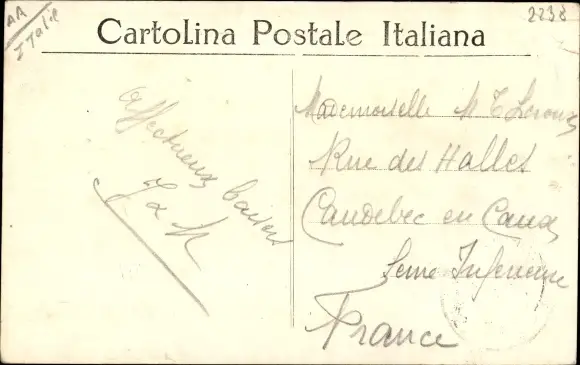 AA
Italie
2238
Cartolina Postale Italiana
Affectueux baisers
J & M
Mademoiselle M T Leroux
Rue des Halles
Caudebec en Caux
Seine Inferieure
France